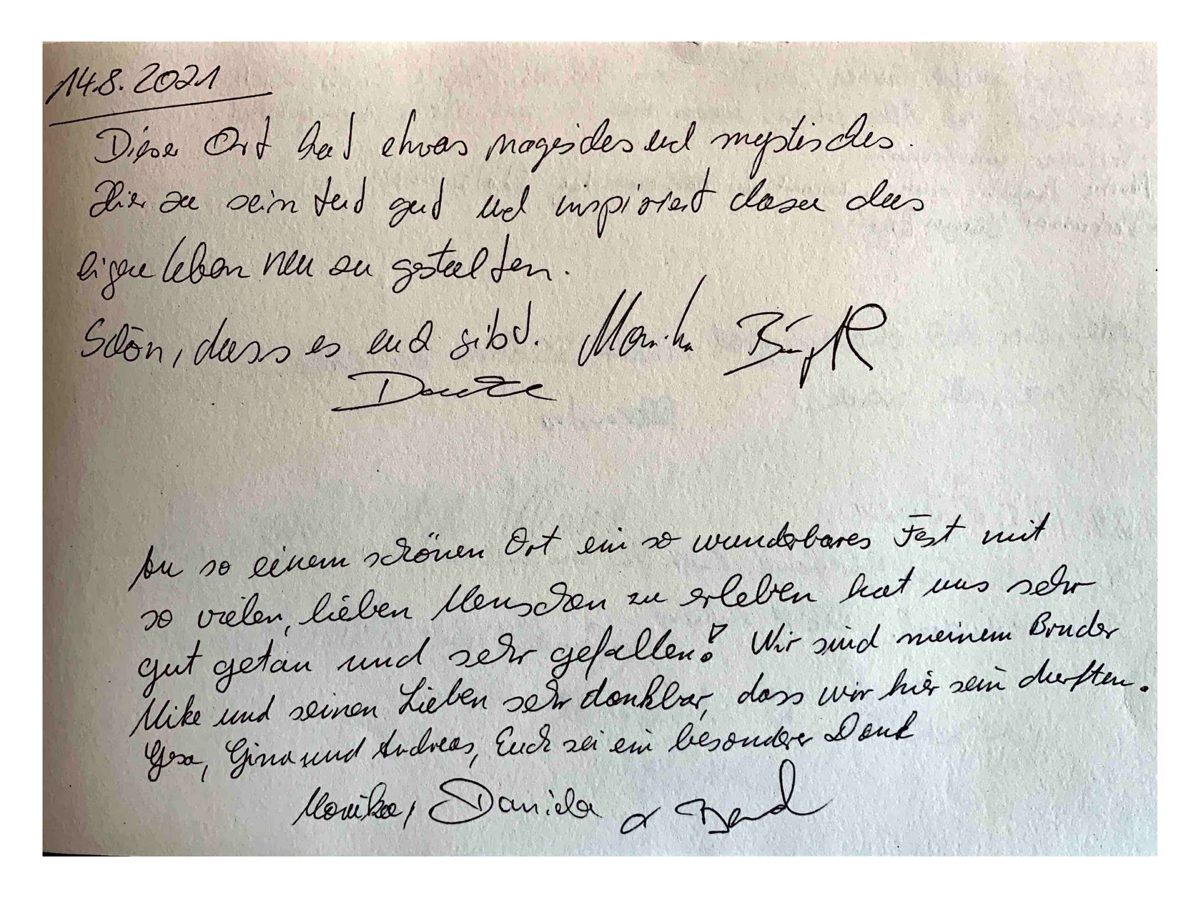 14.8.2021
Dieser Ort hat etwas magisches und mystisches.
Hier zu sein tut gut und inspiriert dazu das
eigene Leben neu zu gestalten.
Schön, dass es euch gibt. Monika
Danke
An so einem schönen Ort ein so wunderbares Fest mit
so vielen, lieben Menschen zu erleben hat uns sehr
gut getan und sehr gefallen! Wir sind meinem Bruder
Mike und seinen Lieben sehr dankbar, dass wir hier sein durften.
Gesa, Gina und Andreas, Euch sei ein besonderer Dank
Monika, Daniela & Bernd